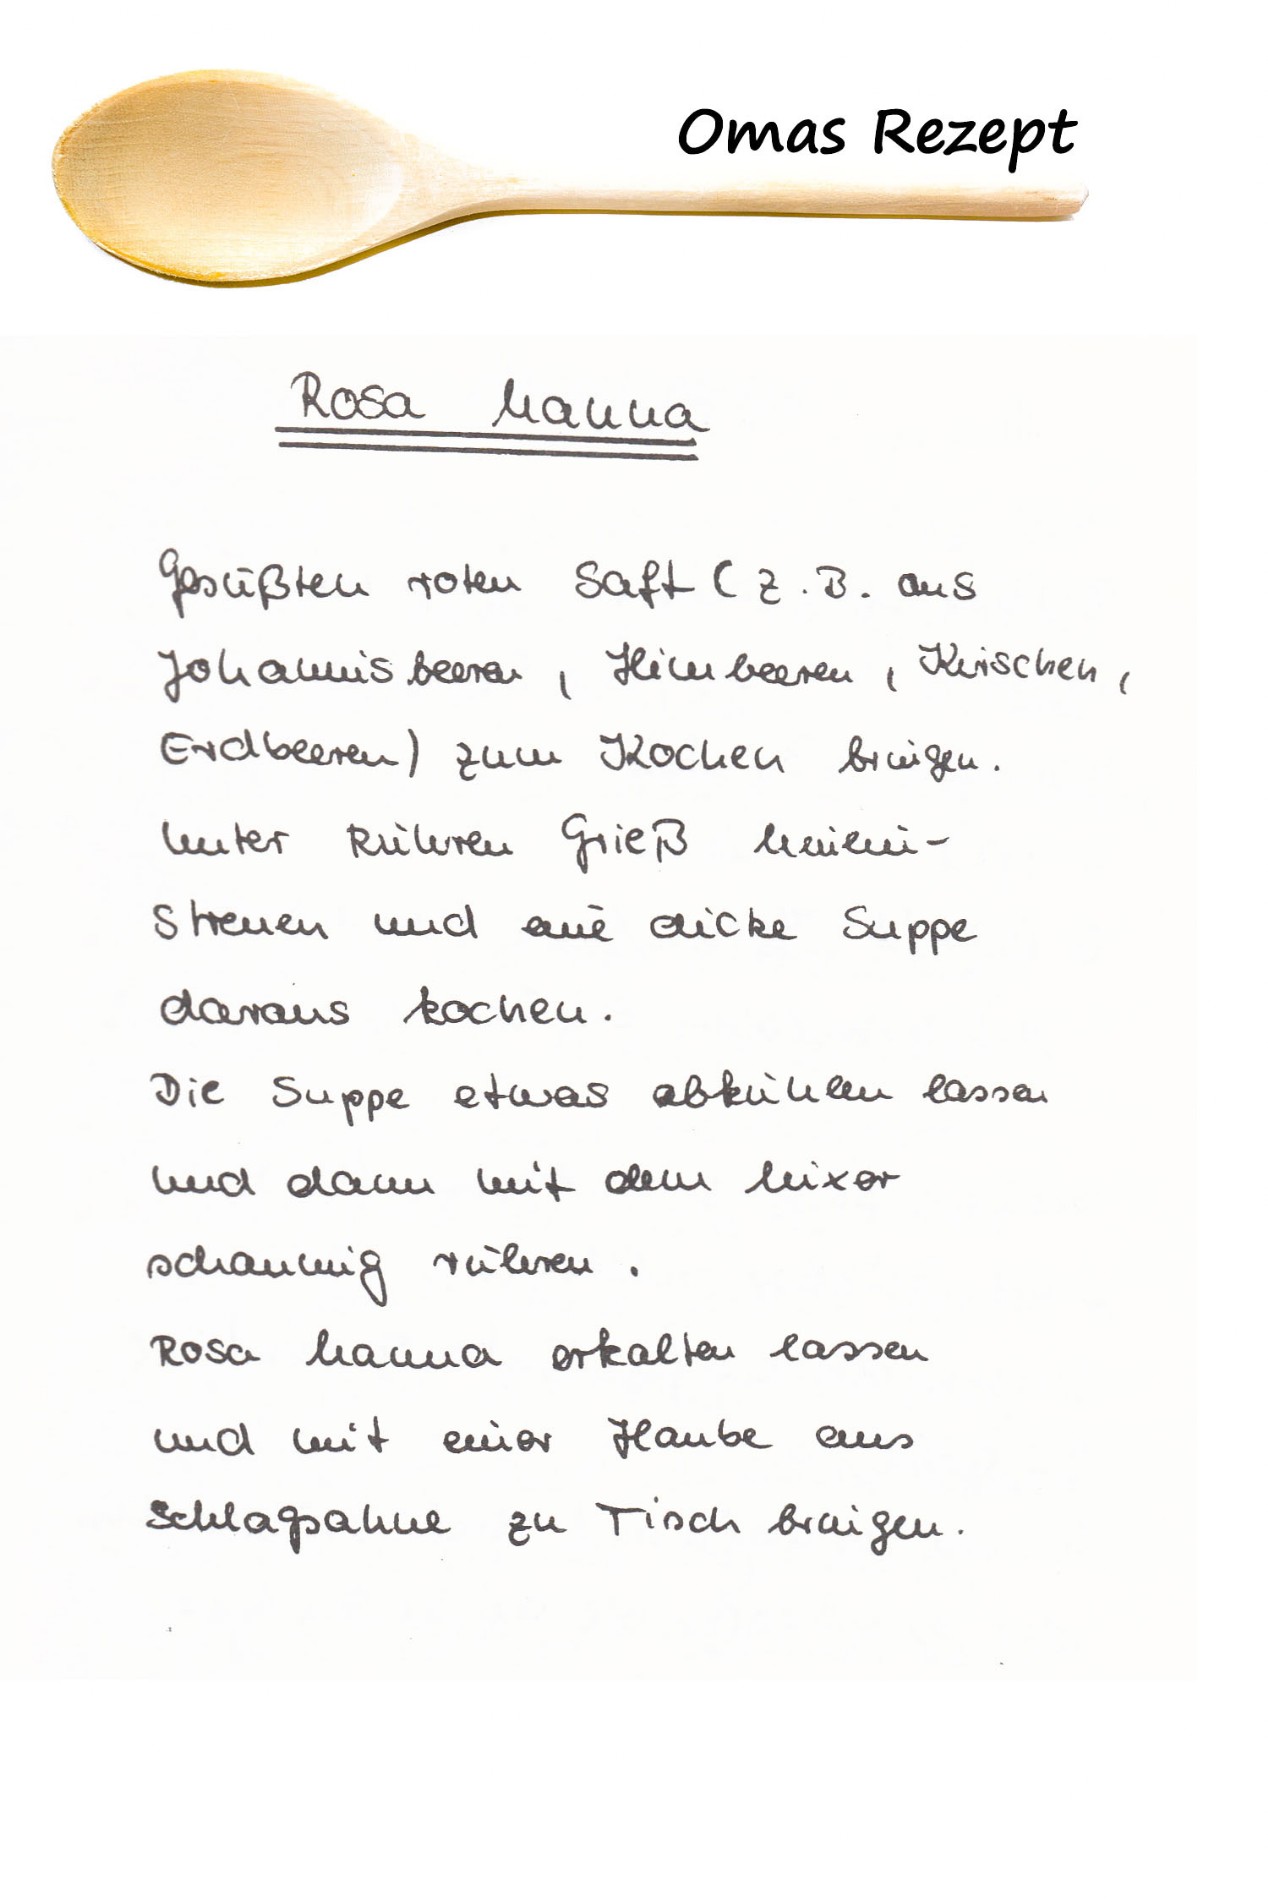 Omas Rezept
Rosa Manna
Gesüßten roten Saft (z.B. aus
Johannisbeeren, Himbeeren, Kirschen,
Erdbeeren) zum Kochen bringen.
Unter Rühren Grieß hinein-
streuen und eine dicke Suppe
daraus kochen.
Die Suppe etwas abkühlen lassen
und dann mit dem Mixer
schaumig rühren.
Rosa Manna erkalten lassen
und mit einer Haube aus
Schlagsahne zu Tisch bringen.